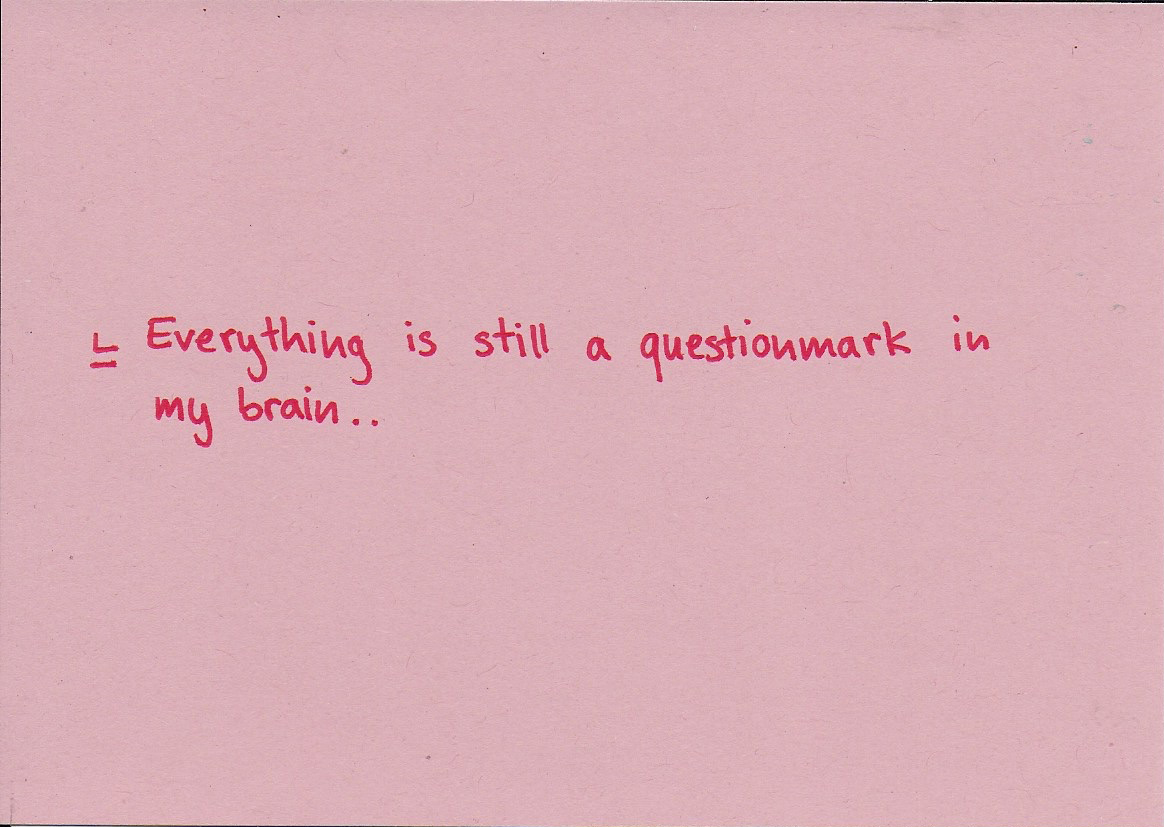 L Everything is still a questionmark in
my brain..